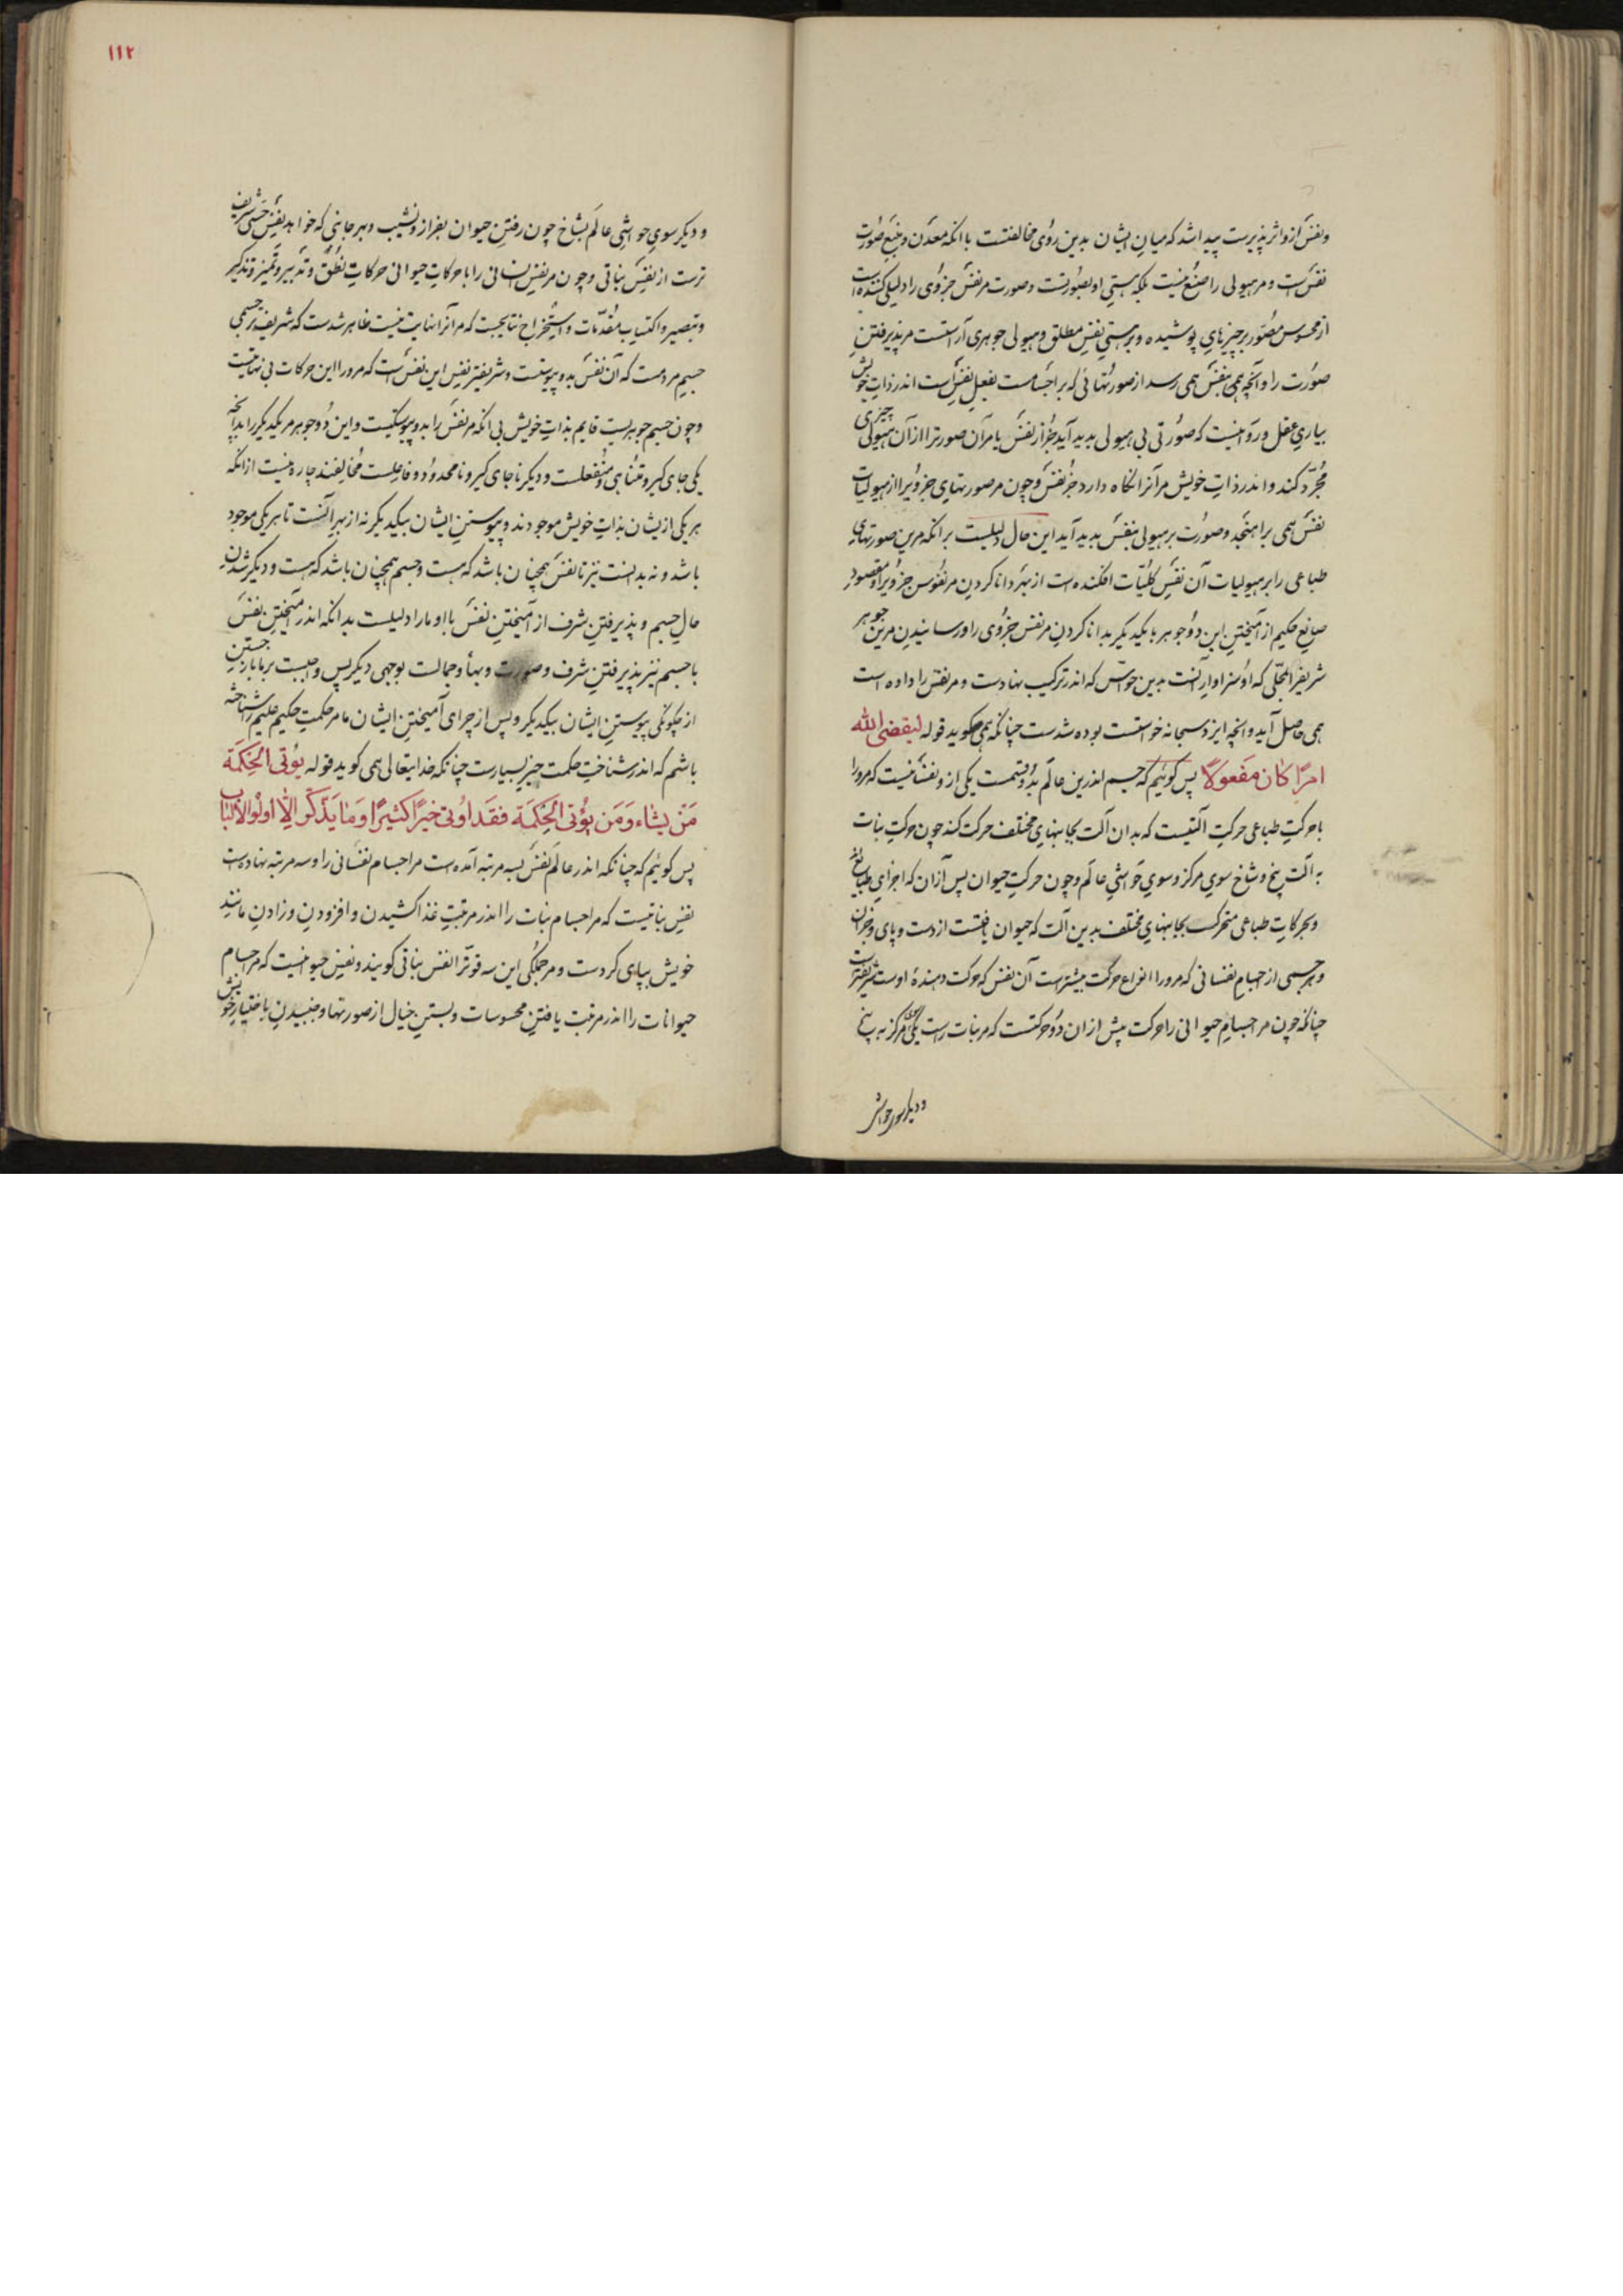 ونفس ازو اثرپذیرست پیدا شد که میان ایشان بدین روی مخالفتست با انکه معدن و منبع صورت
نفس است و مر هیولی را صنع نیست بلکه هستی او بصورتست و صورت مر نفس جزوی را دلیلی کننده است
از محسوس مصور بر چیزهای پوشیده و بر هستی نفس مطلق و هیولی جوهری آراستست مر پذیرفتن
صورت را و آنچه همی بنفس همی رسد از صورتهائی که بر اجسامست بفعل نفس است اندر ذات خویش
بیاری عقل و روا نیست که صورتی بی هیولی پدید آید جز از نفس یا مر آن صورترا از آن هیولی چیزی
مجرد کند و اندر ذات خویش مر آنرا نگاه دارد جز نفس و چون مر صورتهای جزویرا از هیولیات
نفس همی برآهنجد و صورت بر هیولی بنفس پدید آید این حال دلیلست بر انکه مرین صورتهای
طباعی را بر هیولیات آن نفس کلیات افکنده است از بهر دانا کردن مر نفوس جزویرا و مقصود
صانع حکیم از آمیختن این دو جوهر با یکدیگر بدانا کردن مر نفس جزوی را و رسانیدن مرین جوهر
شریف را بمحلی که او سزاوار آنست بدین حواس که اندر ترکیب نهادست و مر نفس را داده است
همی حاصل آید و انچه ایزد سبحانه خواستست بوده شدست چنانکه همی گوید قوله لیقضی الله
امرًا کان مفعولاً پس گوئیم که جسم اندرین عالم بدو قسمت یکی ازو نفسانیست که مرورا
با حرکت طباعی حرکت آلتیست که بدان آلت بجانبهای مختلف حرکت کند چون حرکت نبات
به آلت بیخ و شاخ سوی مرکز و سوی حواشی عالم و چون حرکت حیوان پس از آن که اجزای طبایع
وبحرکات طباعی متحرکست بجانبهای مختلف بدین آلت که حیوان یافتست از دست و پای و جز آن
وهر جسمی از اجسام نفسانی که مرورا انواع حرکت بیشترست آن نفس که حرکت دهنده اوست شریفترست
چنانکه چون مر اجسام حیوانی را حرکت بیش از ان دو حرکتست که مر نبات راست یکی سوی مرکز به بیخ
و دیگر سوی حواشی
١١٢
و دیگر سوی حواشی عالم بشاخ چون رفتن حیوان بفراز و نشیب و بهر جانبی که خواهد نفس حسی شریف
ترست از نفس نباتی و چون مر نفس انسانی را با حرکات حیوانی حرکات نطق و تدبیر و تمییز و تذکیر
و تبصیر و اکتساب مقدمات و استخراج نتایجست که مر آنرا نهایت نیست ظاهر شدست که شریفتر جسمی
جسم مردمست که آن نفس بدو پیوستست و شریفتر نفس این نفس است که مرورا این حرکات بی نهایتست
وچون جسم جوهریست قایم بذات خویش بی انکه مر نفس را بدو پیوستگیست و این دو جوهر مر یکدیگر را بدانچه
یکی جای گیر و متناهی و منفعلست و دیگر نا جای گیر و نا محدود و فاعلست مخالفند چاره نیست از انکه
هر یکی ازیشان بذات خویش موجودند و پیوستن ایشان بیکدیگر نه از بهر آنست تا هر یکی موجود
باشد و نه بدانست نیز تا نفس همچنان باشد که هست و جسم همچنان باشد که هست و دیگر شدن
حال جسم و پذیرفتن شرف از آمیختن نفس با او ما را دلیلست بدانکه اندر آمیختن نفس
با جسم نیز پذیرفتن شرف و صورت و بها و جمالست بوجهی دیگر پس واجبست بر ما باز جستن
از چگونگی پیوستن ایشان بیکدیگر و پس از چرای آمیختن ایشان ما مر حکمت حکیم علیم را شناخته
باشیم که اندر شناخت حکمت خیر بسیارست چنانکه خدایتعالی همی گوید قوله یُؤتی الحِکمَة
مَن یشاء وَمَن یُؤتی الحِکمَة فقَد اُوتی خیرًا کثیرًا وَمَا یَذّکَّر اِلّا اولُوا الاَلباب
پس گوئیم که چنانکه اندر عالم نفس بسه مرتبه آمده است مر اجسام نفسانی را و سه مرتبه نهاده است
نفس نباتیست که مر اجسام نبات را اندر مرتبت غذا کشیدن و افزودن و زادن مانند
خویش بپای کردست و مر جملگی این سه قوترا نفس نباتی گویند و نفس حیوانیست که مر اجسام
حیوانات را اندر مرتبت یافتن محسوسات و بستن خیال از صورتها و جنبیدن باختیار خویش